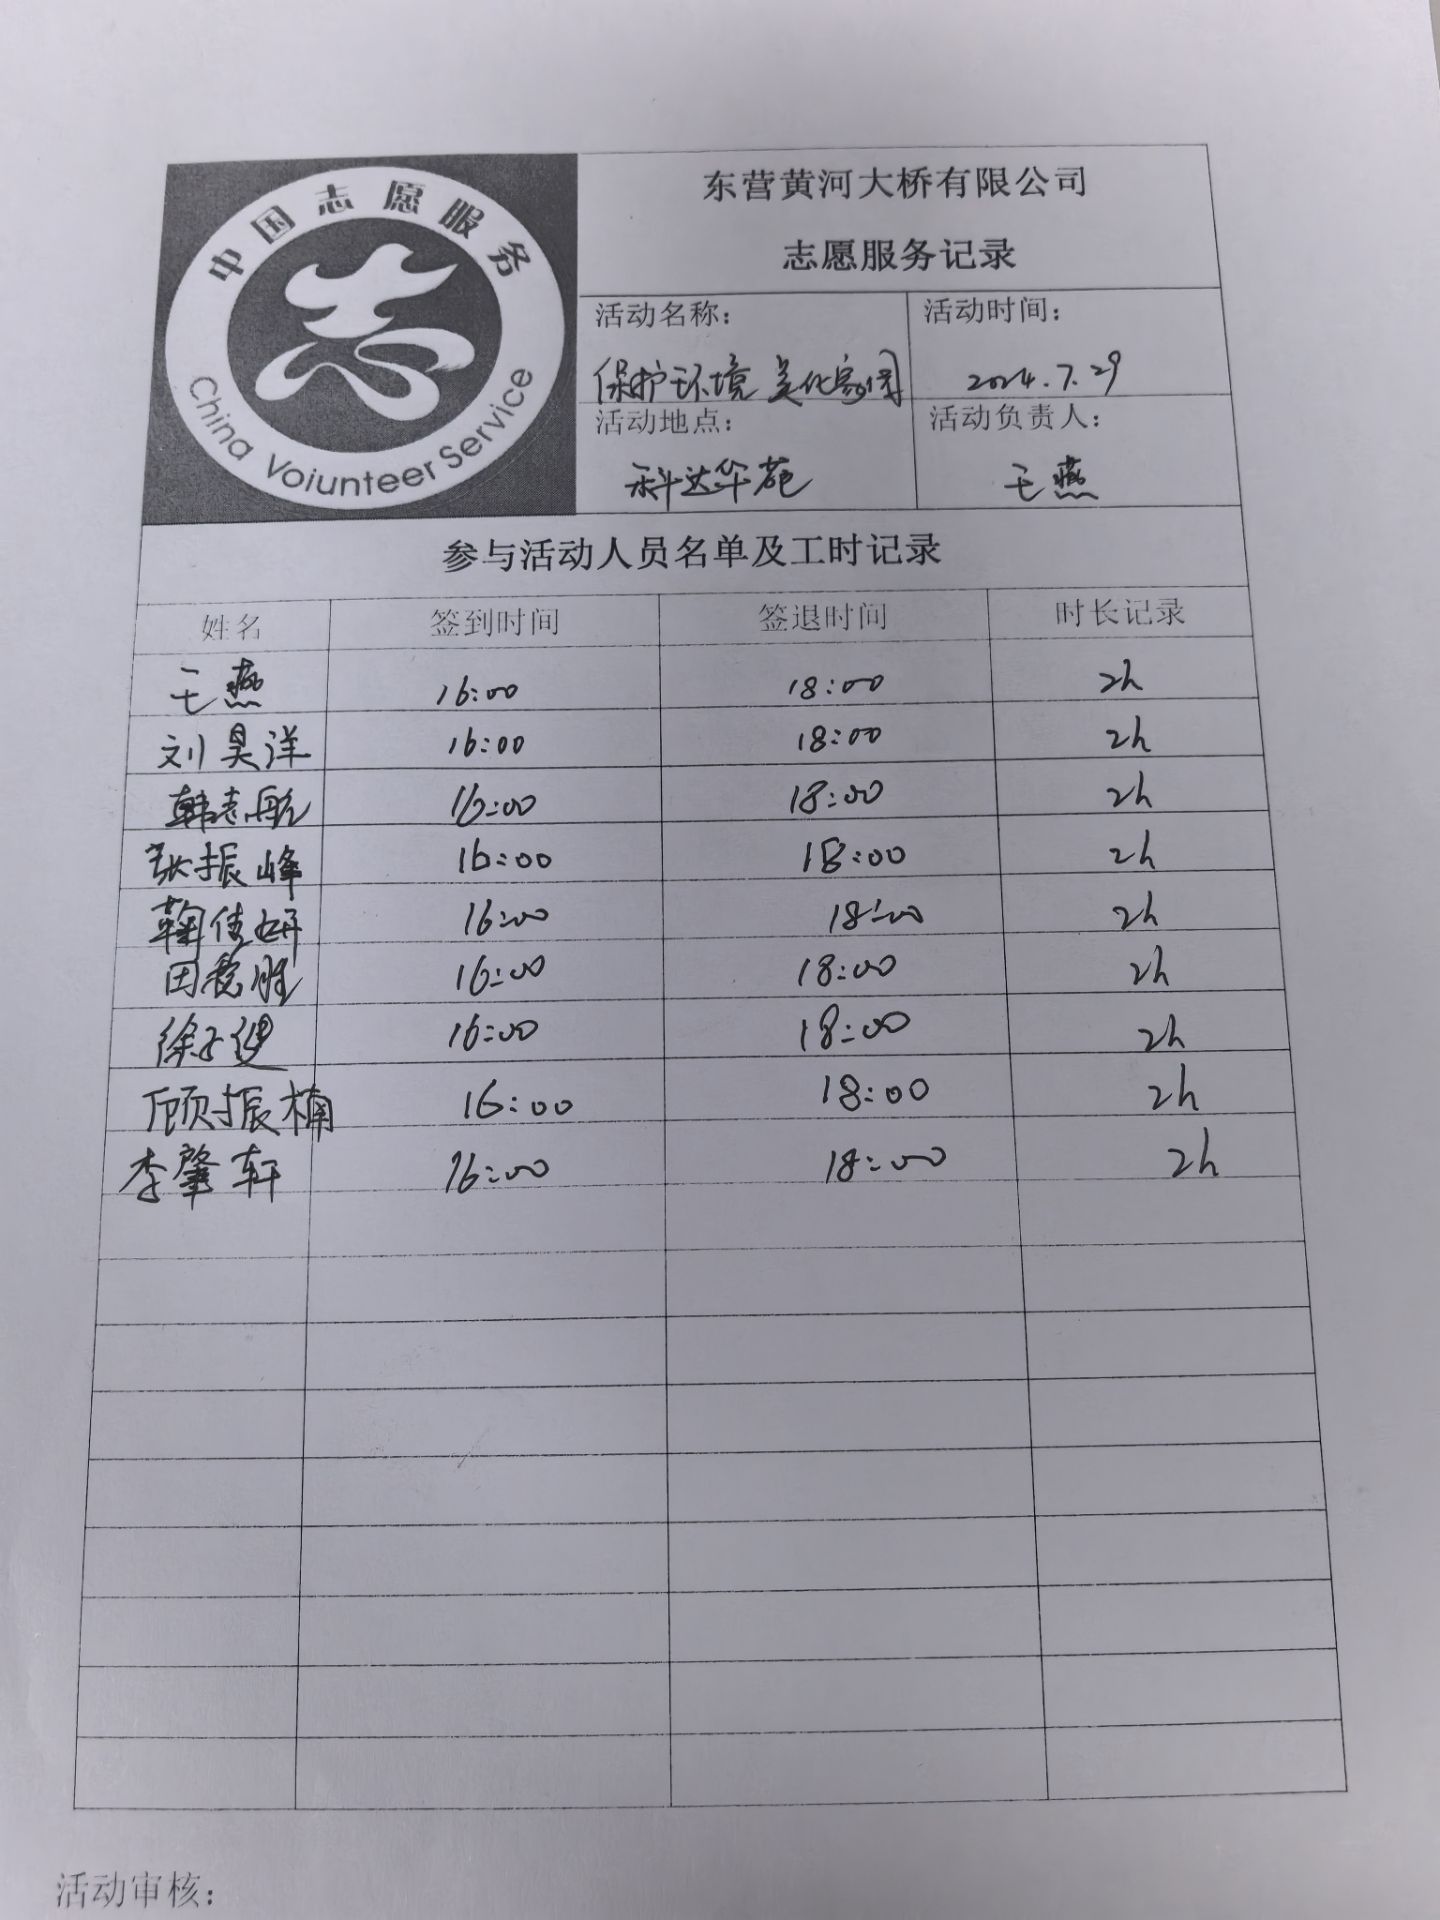 中国志愿服务
China Voiunteer Service
东营黄河大桥有限公司
志愿服务记录
活动名称： 活动时间：
保护环境 美化家园 2024.7.29
活动地点： 活动负责人：
科达华苑 王燕
参与活动人员名单及工时记录
姓名 签到时间 签退时间 时长记录
王燕 16:00 18:00 2h
刘昊洋 16:00 18:00 2h
韩志航 16:00 18:00 2h
张振峰 16:00 18:00 2h
鞠佳妍 16:00 18:00 2h
田 胜 16:00 18:00 2h
徐子健 16:00 18:00 2h
顾振楠 16:00 18:00 2h
李肇轩 16:00 18:00 2h
活动审核：